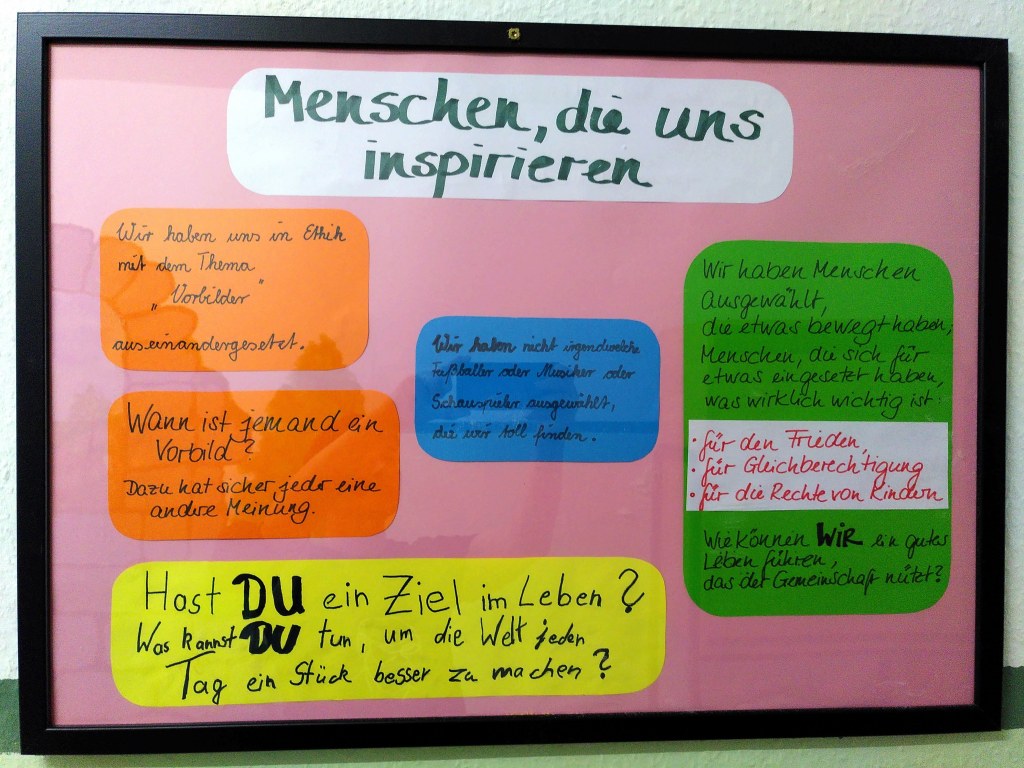 Menschen, die uns
inspirieren
Wir haben uns in Ethik
mit dem Thema
„Vorbilder"
auseinandergesetzt.
Wann ist jemand ein
Vorbild?
Dazu hat sicher jeder eine
andere Meinung.
Wir haben nicht irgendwelche
Fußballer oder Musiker oder
Schauspieler ausgewählt,
die wir toll finden.
Wir haben Menschen
ausgewählt,
die etwas bewegt haben;
Menschen, die sich für
etwas eingesetzt haben,
was wirklich wichtig ist:
• für den Frieden,
• für Gleichberechtigung
• für die Rechte von Kindern
Wie können WIR ein gutes
Leben führen,
das der Gemeinschaft nützt?
Hast DU ein Ziel im Leben?
Was kannst DU tun, um die Welt jeden
Tag ein Stück besser zu machen?